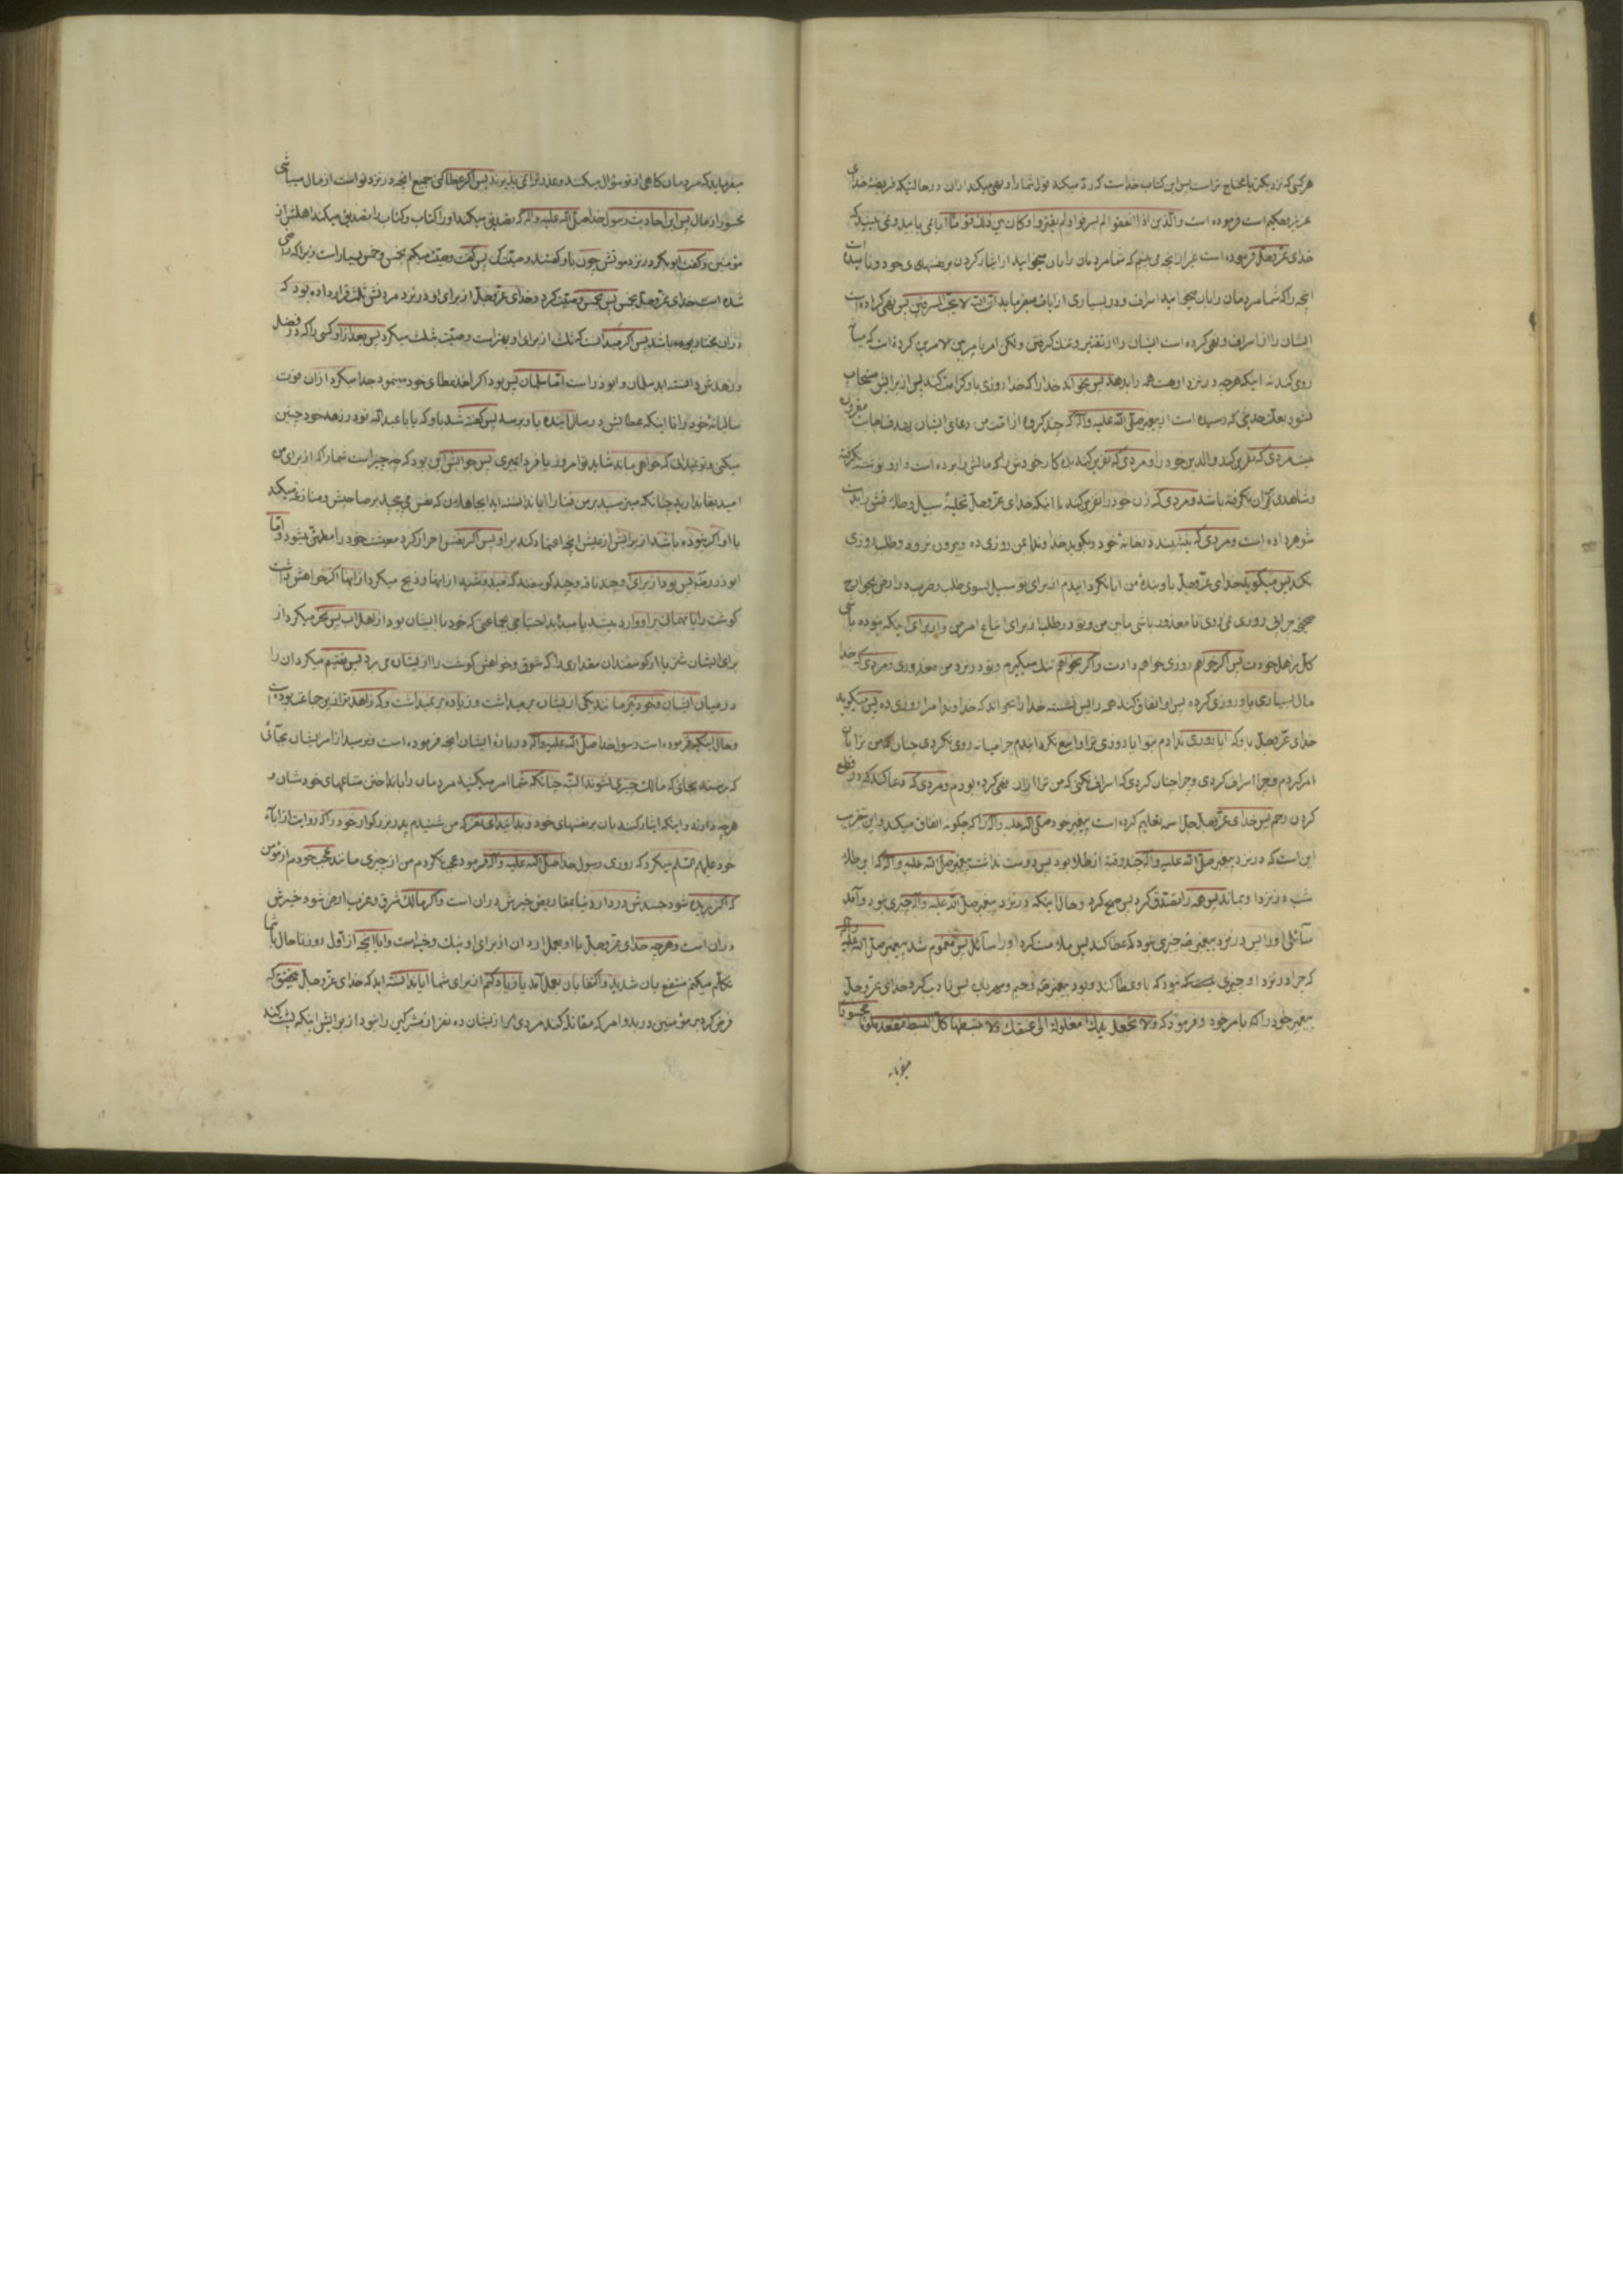 هر کسی که نزدیکتر یا محتاج تر است پس این کتاب خداست که رد میکند قول شما را و نهی میکند از ان در حالتیکه فریضهٔ خدای
عزیز و حکیم است فرموده است والذین اذا انفقوا لم یسرفوا ولم یقتروا وکان بین ذلک قواما ایا نمی یابید و نمی بینید که
خدای عزوجل فرموده است غیر از انچه می بینم که شما مردمان را بان میخوانید از ایثار کردن بر نفسهای خود و نامیده است
انچه را که شما مردمان را بان میخوانید اسراف و در بسیاری از ایات میفرماید انه لا یحب المسرفین پس نهی کرده است
ایشان را از اسراف و نهی کرده است ایشان را از تقتیر و تنک کرفتن و لکن امر بامر بین الامرین کرده است که میانه
روی کند نه اینکه هر چه در نزد او هست همه را بدهد پس بخواند خدا را که خدا روزی باو کرامت کند پس از برایش مستجاب
نشود بعلت حدیثی که رسیده است از پیغمبر صلی الله علیه واله که چند کروه از امت من دعای ایشان
مردی که نفرین کند والدین خود را و مردی که نفرین کند بده کار خودش را که مالش را برده است و از او نوشته نکرفته
و شاهدی بران نکرفته باشد و مردی که زن خود را نفرین کند با اینکه خدای عزوجل تخلیهٔ سبیل و طلاقش را بدست
شوهر داده است و مردی که بنشیند در خانهٔ خود و بکوید خداوندا بمن روزی ده و بیرون نرود و طلب روزی
نکند پس میکوید خدای عزوجل باو بندهٔ من ایا نکردانیدم از برای تو سبیل بسوی طلب و ضرب در ارض بجوارح
صحیح تا معذور باشی ما بین من و تو در طلب از برای اتباع امر من و از برای اینکه نبوده باشی
کل بر اهل خودت پس اکر خواهم روزی خواهم دادت و اکر بخواهم تنک میکیرم و تو در نزد من معذوری و مردی که خدا
مال بسیاری باو روزی کرده پس او انفاق کند همه را پس نشسته خدا را بخواند که خداوندا مرا روزی ده پس میکوید
خدای عزوجل باو که ایا روزی ندادم بتو ایا روزی ترا واسع نکردانیدم چرا میانه روی نکردی چنان که من ترا بان
امر کردم و چرا اسراف کردی و چرا چنان کردی که اسراف نکنی که من ترا از ان نهی کرده بودم و مردی که دعا کند که در قطع
کردن رحم پس خدای عزوجل تعلیم کرده است پیغمبر خود صلی الله علیه واله را که چکونه انفاق میکند و این
این است که در نزد پیغمبر صلی الله علیه واله چند وقیه از طلا بود پس دوست نداشت پیغمبر صلی الله علیه واله که ان طلا
شب در نزد او بماند پس همه را بتصدق کرد پس صبح کرد و حال اینکه در نزد پیغمبر صلی الله علیه واله چیزی نبود و آمد
سائلی او را پس در نزد پیغمبر چیزی نبود که عطا کند پس ملامت کرد او را سائل پس مغموم شد پیغمبر صلی الله علیه واله
که چرا در نزد او چیزی نبود که باو عطا کند و بود پیغمبر رحیم و مهربان پس تادیب کرد خدای عزوجل
پیغمبر خود را که بامر خود و فرمود که ولا تجعل یدک مغلولة الی عنقک ولا تبسطها کل البسط فتقعد ملوما محسورا
میفرماید
میفرماید که مردمان کاهی از تو سؤال میکنند و عذر ترا نمی پذیرند پس اکر عطا کنی جمیع انچه در نزد تو است از مال میباشی
محسور از مال پس این احادیث رسول خدا صلی الله علیه واله که تصدیق میکند او را کتاب و کتاب را تصدیق میکند اهلش از
مؤمنین و کفت ابوبکر در نزد موتش چون باو کفتند وصیت کن پس کفت وصیت میکنم بخمس و خمس بسیار است زیرا که راضی
شده است خدای عزوجل بخمس پس بخمس وصیت کرد و خدای عزوجل از برای او در نزد مردنش ثلث قرار داده بود که
در ان مختار بوده باشد پس اکر میدانست که ثلث از برای او بهتر است وصیت بثلث میکرد پس بعد از او کسی را که در فضل
و زهدش دانسته اید سلمان و ابوذر است اما سلمان پس بود اکر اخذ عطای خود مینمود جدا میکرد از ان قوت
سالیانهٔ خود را تا اینکه عطایش در سال اینده باو برسد پس کفته شد باو که یا ابا عبدالله تو در زهد خود چنین
میکنی و تو نمیدانی که خواهی ماند شاید تو امروز یا فردا بمیری پس جوابش این بود که چه چیز است شما را که از برای من
امید بقا ندارید چنانکه میترسید بر من فنا را ایا ندانسته اید ای جاهلان که نفس می پیچد بر صاحبش و منازعه میکند
با او اکر نبوده باشد از برایش از عیش انچه اعتماد کند بر او پس اکر نفس احراز کرد معیشت خود را مطمئن میشود و اما
ابوذر پس بود از برای او چند ناقه و چند کوسفند که میدوشید از انها و ذبح میکرد از انها اکر خواهش داشت
کوشت را یا مهمانی بر او وارد میشد یا میدید احتیاجی بجماعتی که خود با ایشان بود از اهل اب پس نحر میکرد از
برای ایشان شتر یا از کوسفندان مقداری را که شوق و خواهش کوشت را از ایشان می برد پس قسیم میکرد ان را
در میان ایشان و خود نیز مانند یکی از ایشان بر میداشت و زیاده بر نمیداشت و که زاهدتر از این جماعت بوده است
و حال اینکه فرموده است رسول خدا صلی الله علیه واله در بارهٔ ایشان انچه فرموده است و نرسید از امر ایشان بجائی
که برسند بجائی که مالک چیزی نشوند البته چنانکه شما امر میکنید مردمان را بانداختن متاعهای خودشان و
هر چه دارند و اینکه ایثار کنند بان بر نفسهای خود و بدانید ای نفر که من شنیدم پدر بزرکوار خود را که روایت از اباء
خود علیهم السلام میکرد که روزی رسول خدا صلی الله علیه واله فرمود عجب نکردم من از چیزی مانند عجب خودم از مؤمن
که اکر بریده شود جسدش در دار دنیا بمقاریض خیرش در ان است و اکر مالک شرق و غرب ارض شود خیرش
در ان است و هر چه خدای عزوجل با او بعمل ارد ان از برای او نیک و خیر است و ایا انچه از اول روز تا حال با شما
تکلم میکنم منتفع بان شدید و اکتفا بان بعمل آمد یا زیاد کنم از برای شما ایا ندانسته اید که خدای عزوجل بتحقیق که
فرض کرد بر مؤمنین در بدو امر که مقاتله کند مردی از ایشان ده نفر از مشرکین را نبود از برایش اینکه پشت کند